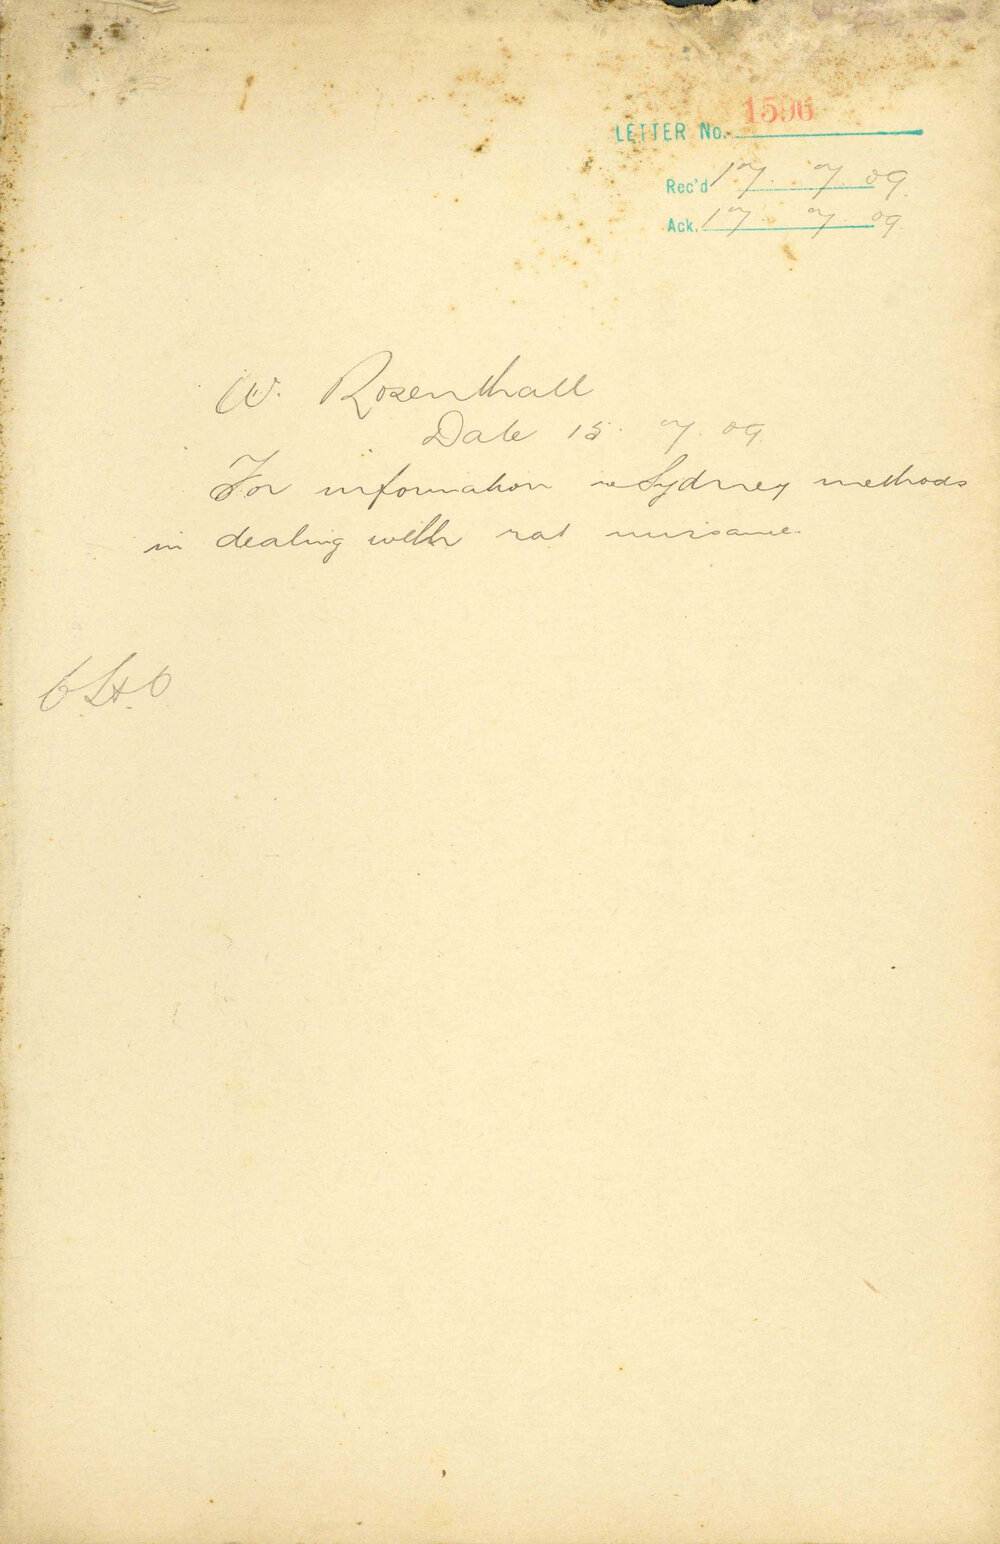 LETTER No. 1596
Rec'd 17. 7. 09.
Ack. 17. 7. 09.
W. Rosenthall
Date 15. 7. 09.
For information re Sydney methods
in dealing with rat nuisance.